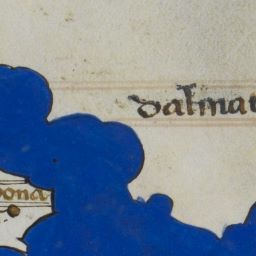 dalma
ona